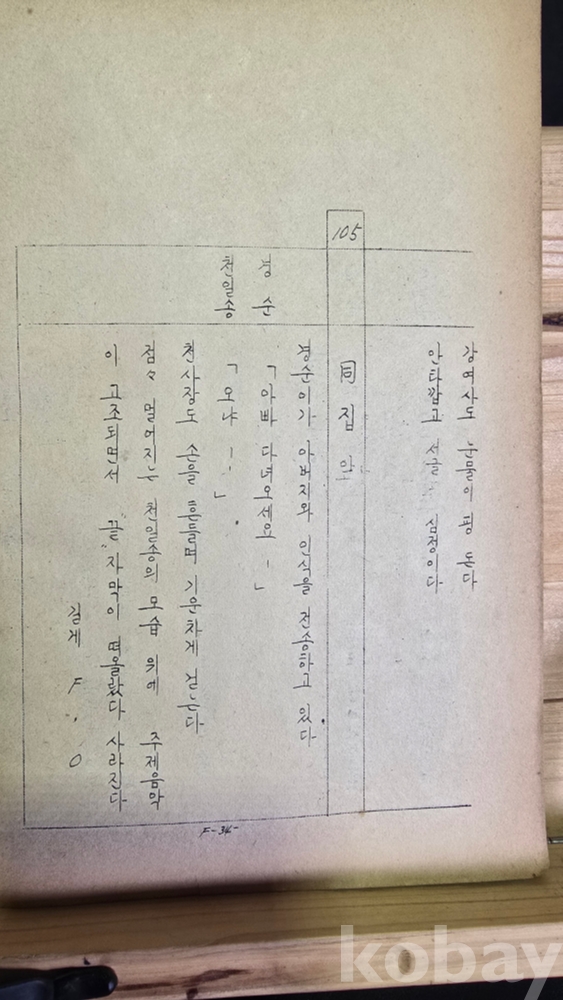 강여사도 눈물이 핑 돈다
안타깝고 서글픈 심정이다
105 同 집 앞
경순이가 아버지와 인식을 전송하고 있다.
경순 「아빠 다녀오세요 -」
천일송 「오냐 -.」
천사장도 손을 흔들며 기운차게 걷는다
점々 멀어지는 천일송의 모습 위에 주제음악
이 고조되면서 "끝" 자막이 떠올랐다 사라진다
길게 F.O
F-34-
kobay